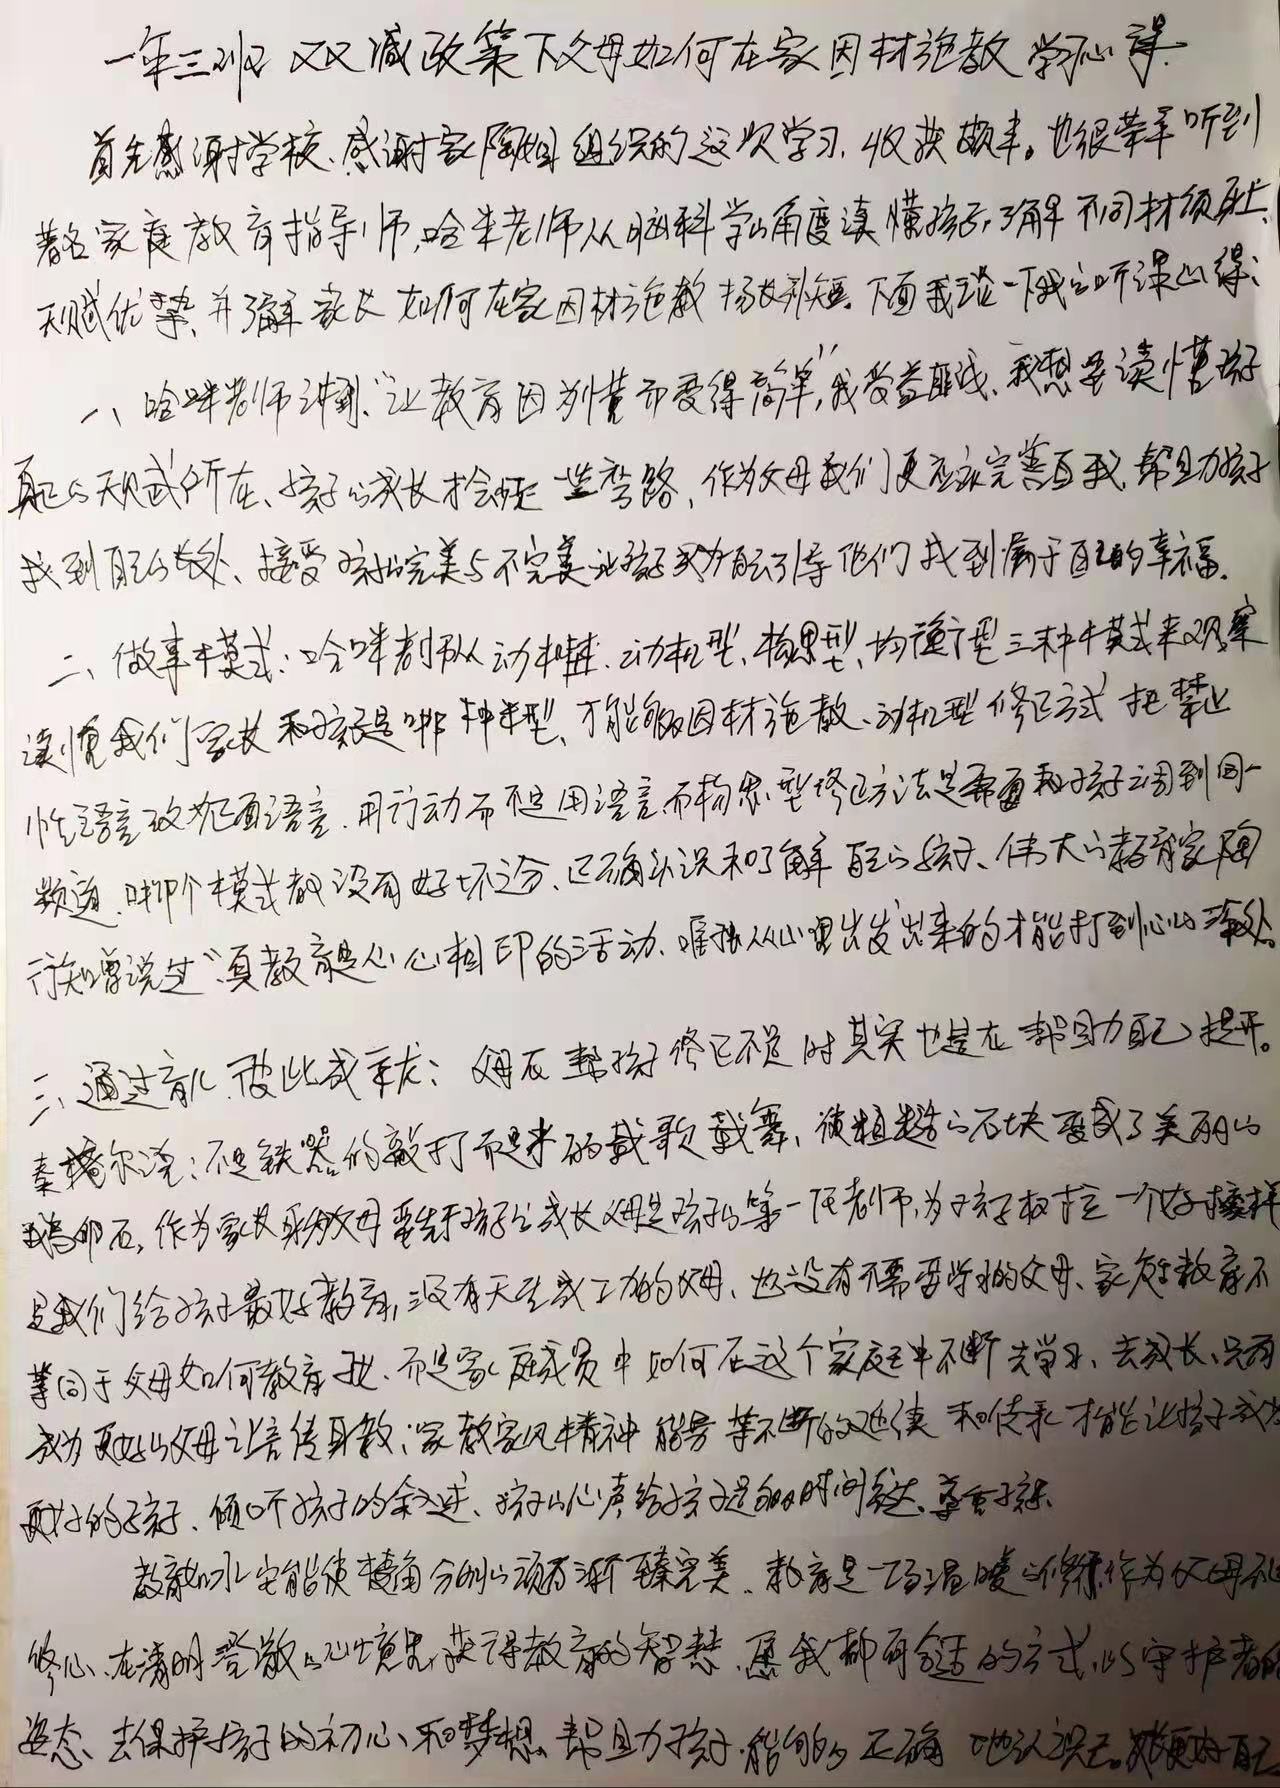 一年三班 双减政策下父母如何在家因材施教学习心得.
首先感谢学校、感谢家 组织的这次学习,收获颇丰。也很荣幸听到
著名家庭教育指导师,哈咪老师从脑科学的角度读懂孩子,了解不同材质
天赋优势,并了解家长如何在家因材施教扬长补短。下面我谈一下我的听课心得:
一、哈咪老师讲到,“让教育因为懂而变得简单”,我受益匪浅、我想要读懂孩子
真正的天赋所在、孩子的成长才会少走一些弯路,作为父母我们更应该完善自我,帮助孩子
找到自己的长处、接受孩子的完美与不完美让孩子成为自己引导他们找到属于自己的幸福.
二、做事模式:哈咪老师从 动机型、构思型、均衡型三种模式来观察
读懂我们家长和孩子是哪种类型,才能够因材施教、动机型修正方式把禁止
性语言改为正面语言,用行动而不是用语言而构思型修正方法是需要和孩子调到同一
频道,哪个模式都没有好坏之分、正确认识和了解自己的孩子、伟大的教育家陶
行知曾说过“真教育是心心相印的活动,唯独从心里出发出来的才能打到心的深处。
三、通过育儿,彼此成就:父母在帮孩子修正不足时其实也是在帮助自己提升。
泰戈尔说:不是铁器的敲打而是水的载歌载舞,使粗糙的石块变成了美丽的
鹅卵石,作为家长身为父母要先于孩子的成长父母是孩子的第一任老师,为孩子树立一个好榜样
是我们给孩子最好的教育,没有天生成功的父母、也没有不需要学习的父母、家庭教育不
等同于父母如何教育 ,而是家庭成员中如何在这个家庭中不断去学习、去成长,只有
成为更好的父母让言传身教,家教家风精神 等不断的延续和传承才能让孩子成为
更好的孩子,倾听孩子的 、孩子的心声给孩子足够的时间 、尊重孩子.
教育如水它能使棱角分明的顽石渐臻完美.教育是一场温暖的修行作为父母
修心、在清明澄澈的心境里,获得教育的智慧.愿我们都用合适的方式,以守护者的
姿态、去保护孩子的初心、和梦想、帮助孩子,能够正确地认识 自己